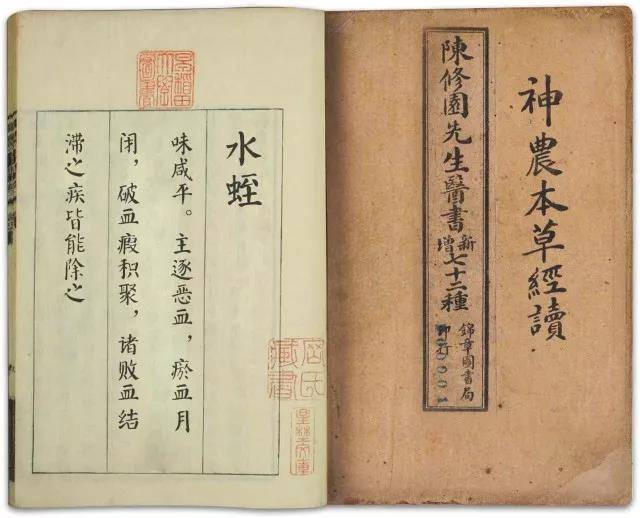 神農本草經讀
陳修園先生醫書新增七十二種
錦章圖書局
印行
水蛭
味咸平。主逐恶血，瘀血月
闭，破血瘕积聚，诸败血结
滞之疾皆能除之
居氏
藏書